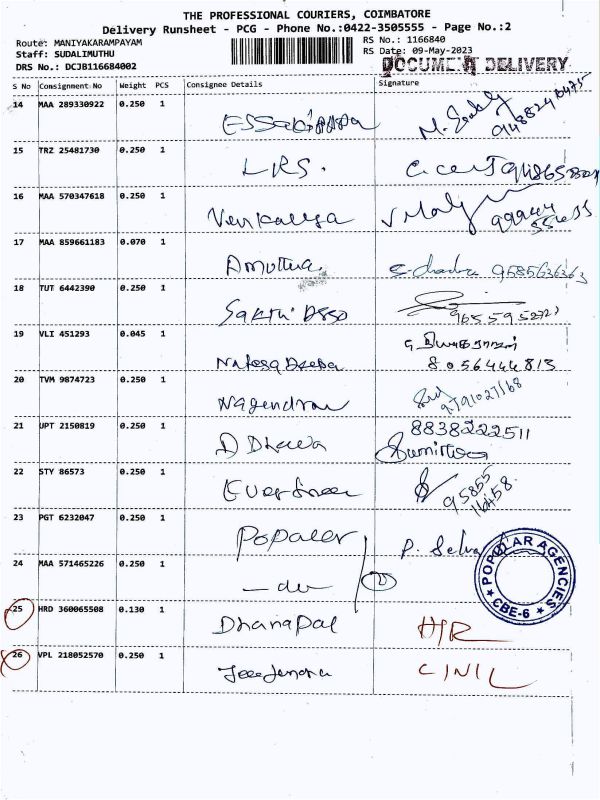 THE PROFESSIONAL COURIERS, COIMBATORE
Delivery Runsheet - PCG - Phone No.:0422-3505555 - Page No.:2
Route: MANIYAKARAMPAYAM
Staff: SUDALIMUTHU
DRS No.: DCJB116684002
RS No.: 1166840
RS Date: 09-May-2023
DOCUMENT DELIVERY
S No Consignment No Weight PCS Consignee Details Signature
14 MAA 289330922 0.250 1
15 TRZ 25481730 0.250 1 LRS.
16 MAA 570347618 0.250 1
17 MAA 859661183 0.070 1 Amutha 9585636363
18 TUT 6442390 0.250 1 Sakthi Asso
19 VLI 451293 0.045 1
8056444813
20 TVM 9874723 0.250 1 Nagendran
21 UPT 2150819 0.250 1 8838222511
22 STY 86573 0.250 1
23 PGT 6232047 0.250 1 Popaler P. Selva
24 MAA 571465226 0.250 1 - do
POPULAR AGENCIES
CBE-6
25 HRD 360065508 0.130 1 Dhanapal H/R
26 VPL 218052570 0.250 1